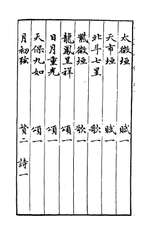 太微垣　賦一
天市垣　賦一
北斗七星　歌一
紫微垣　歌一
龍鳳呈祥　頌一
日月重光　頌一
天保九如　頌一
月初弦　賛二　詩一